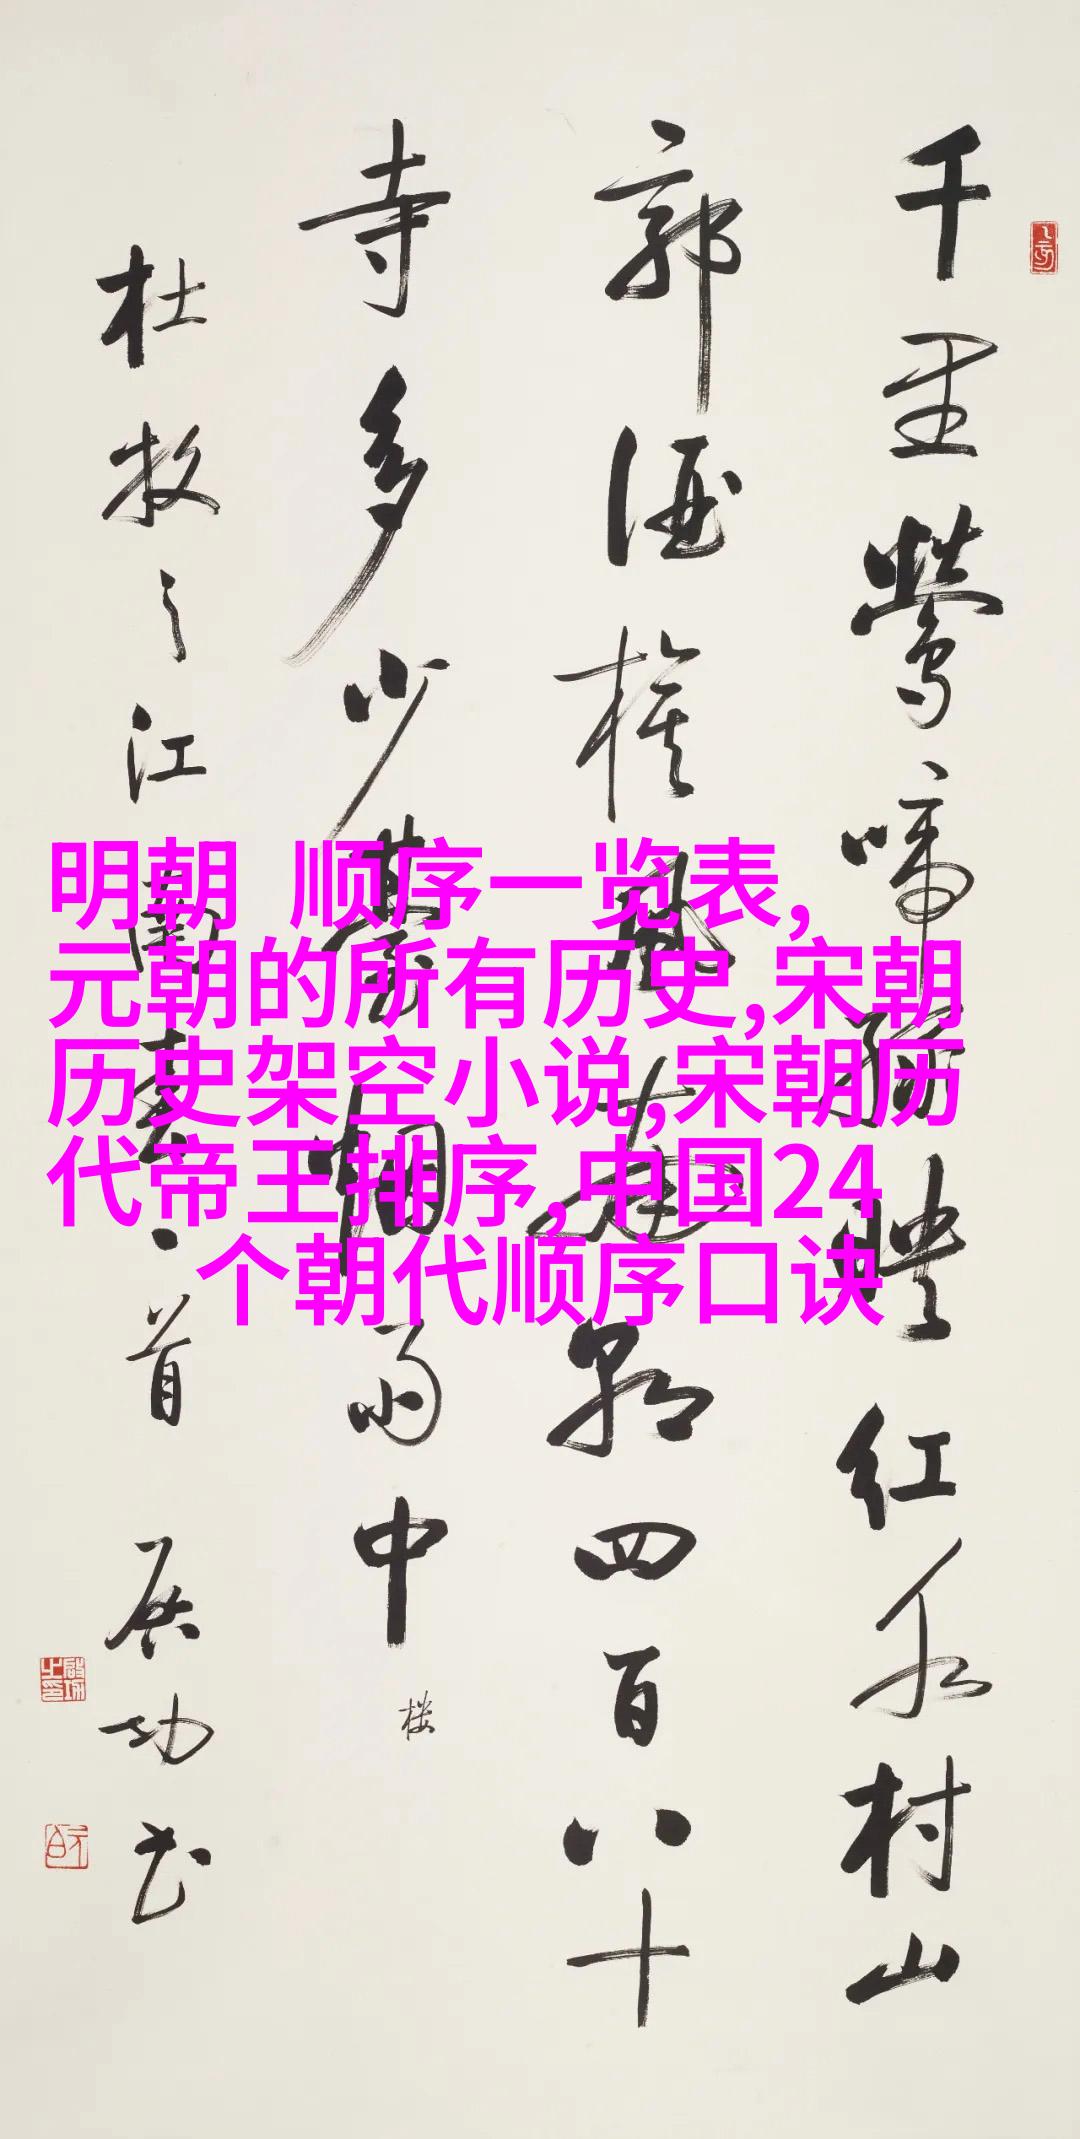 明朝 顺序一览表,
元朝的所有历史,宋朝
历史架空小说,宋朝历
代帝王排序,中国24
个朝代顺序口诀
千里鶯啼绿映红水村山
郭酒旗風南朝四百八十
寺多少臺烟雨中 楼
杜牧之江南春一首 启功书